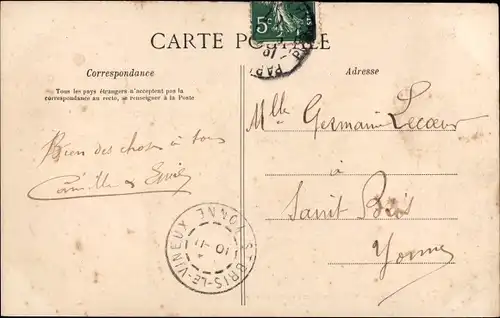 5c
CARTE POSTALE
Correspondance
Tous les pays étrangers n'acceptent pas la
correspondance au recto, se renseigner à la Poste
Bien des choses à tous
Camille &
Adresse
Mlle Germaine Lecoeur
à
Saint Bris
Yonne
ST BRIS-LE-VINEUX YONNE